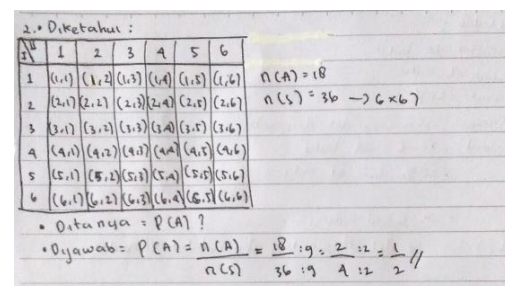 2. • Diketahui :
I\II 1 2 3 4 5 6
1 (1,1) (1,2) (1,3) (1,4) (1,5) (1,6) n(A) = 18
2 (2,1) (2,2) (2,3) (2,4) (2,5) (2,6) n(s) = 36 → 6x6?
3 (3,1) (3,2) (3,3) (3,4) (3,5) (3,6)
4 (4,1) (4,2) (4,3) (4,4) (4,5) (4,6)
5 (5,1) (5,2) (5,3) (5,4) (5,5) (5,6)
6 (6,1) (6,2) (6,3) (6,4) (6,5) (6,6)
• Ditanya = P(A) ?
• Dijawab = P(A) = n(A) / n(s) = 18 / 36 :9 / :9 = 2 / 4 :2 / :2 = 1 / 2 //